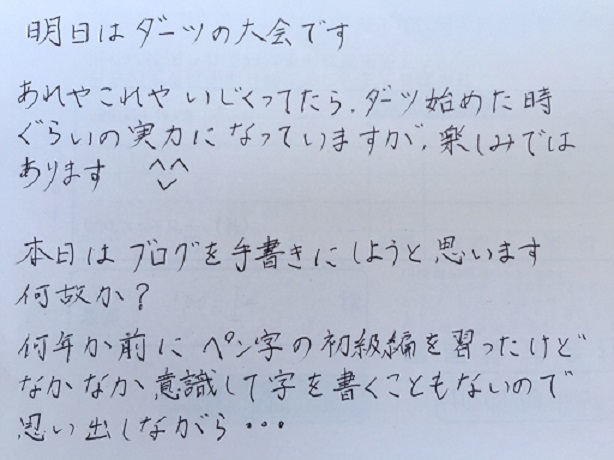 明日はダーツの大会です
あれやこれやいじくってたら、ダーツ始めた時
ぐらいの実力になっていますが、楽しみでは
あります ^^
本日はブログを手書きにしようと思います
何故か?
何年か前にペン字の初級編を習ったけど
なかなか意識して字を書くこともないので
思い出しながら・・・